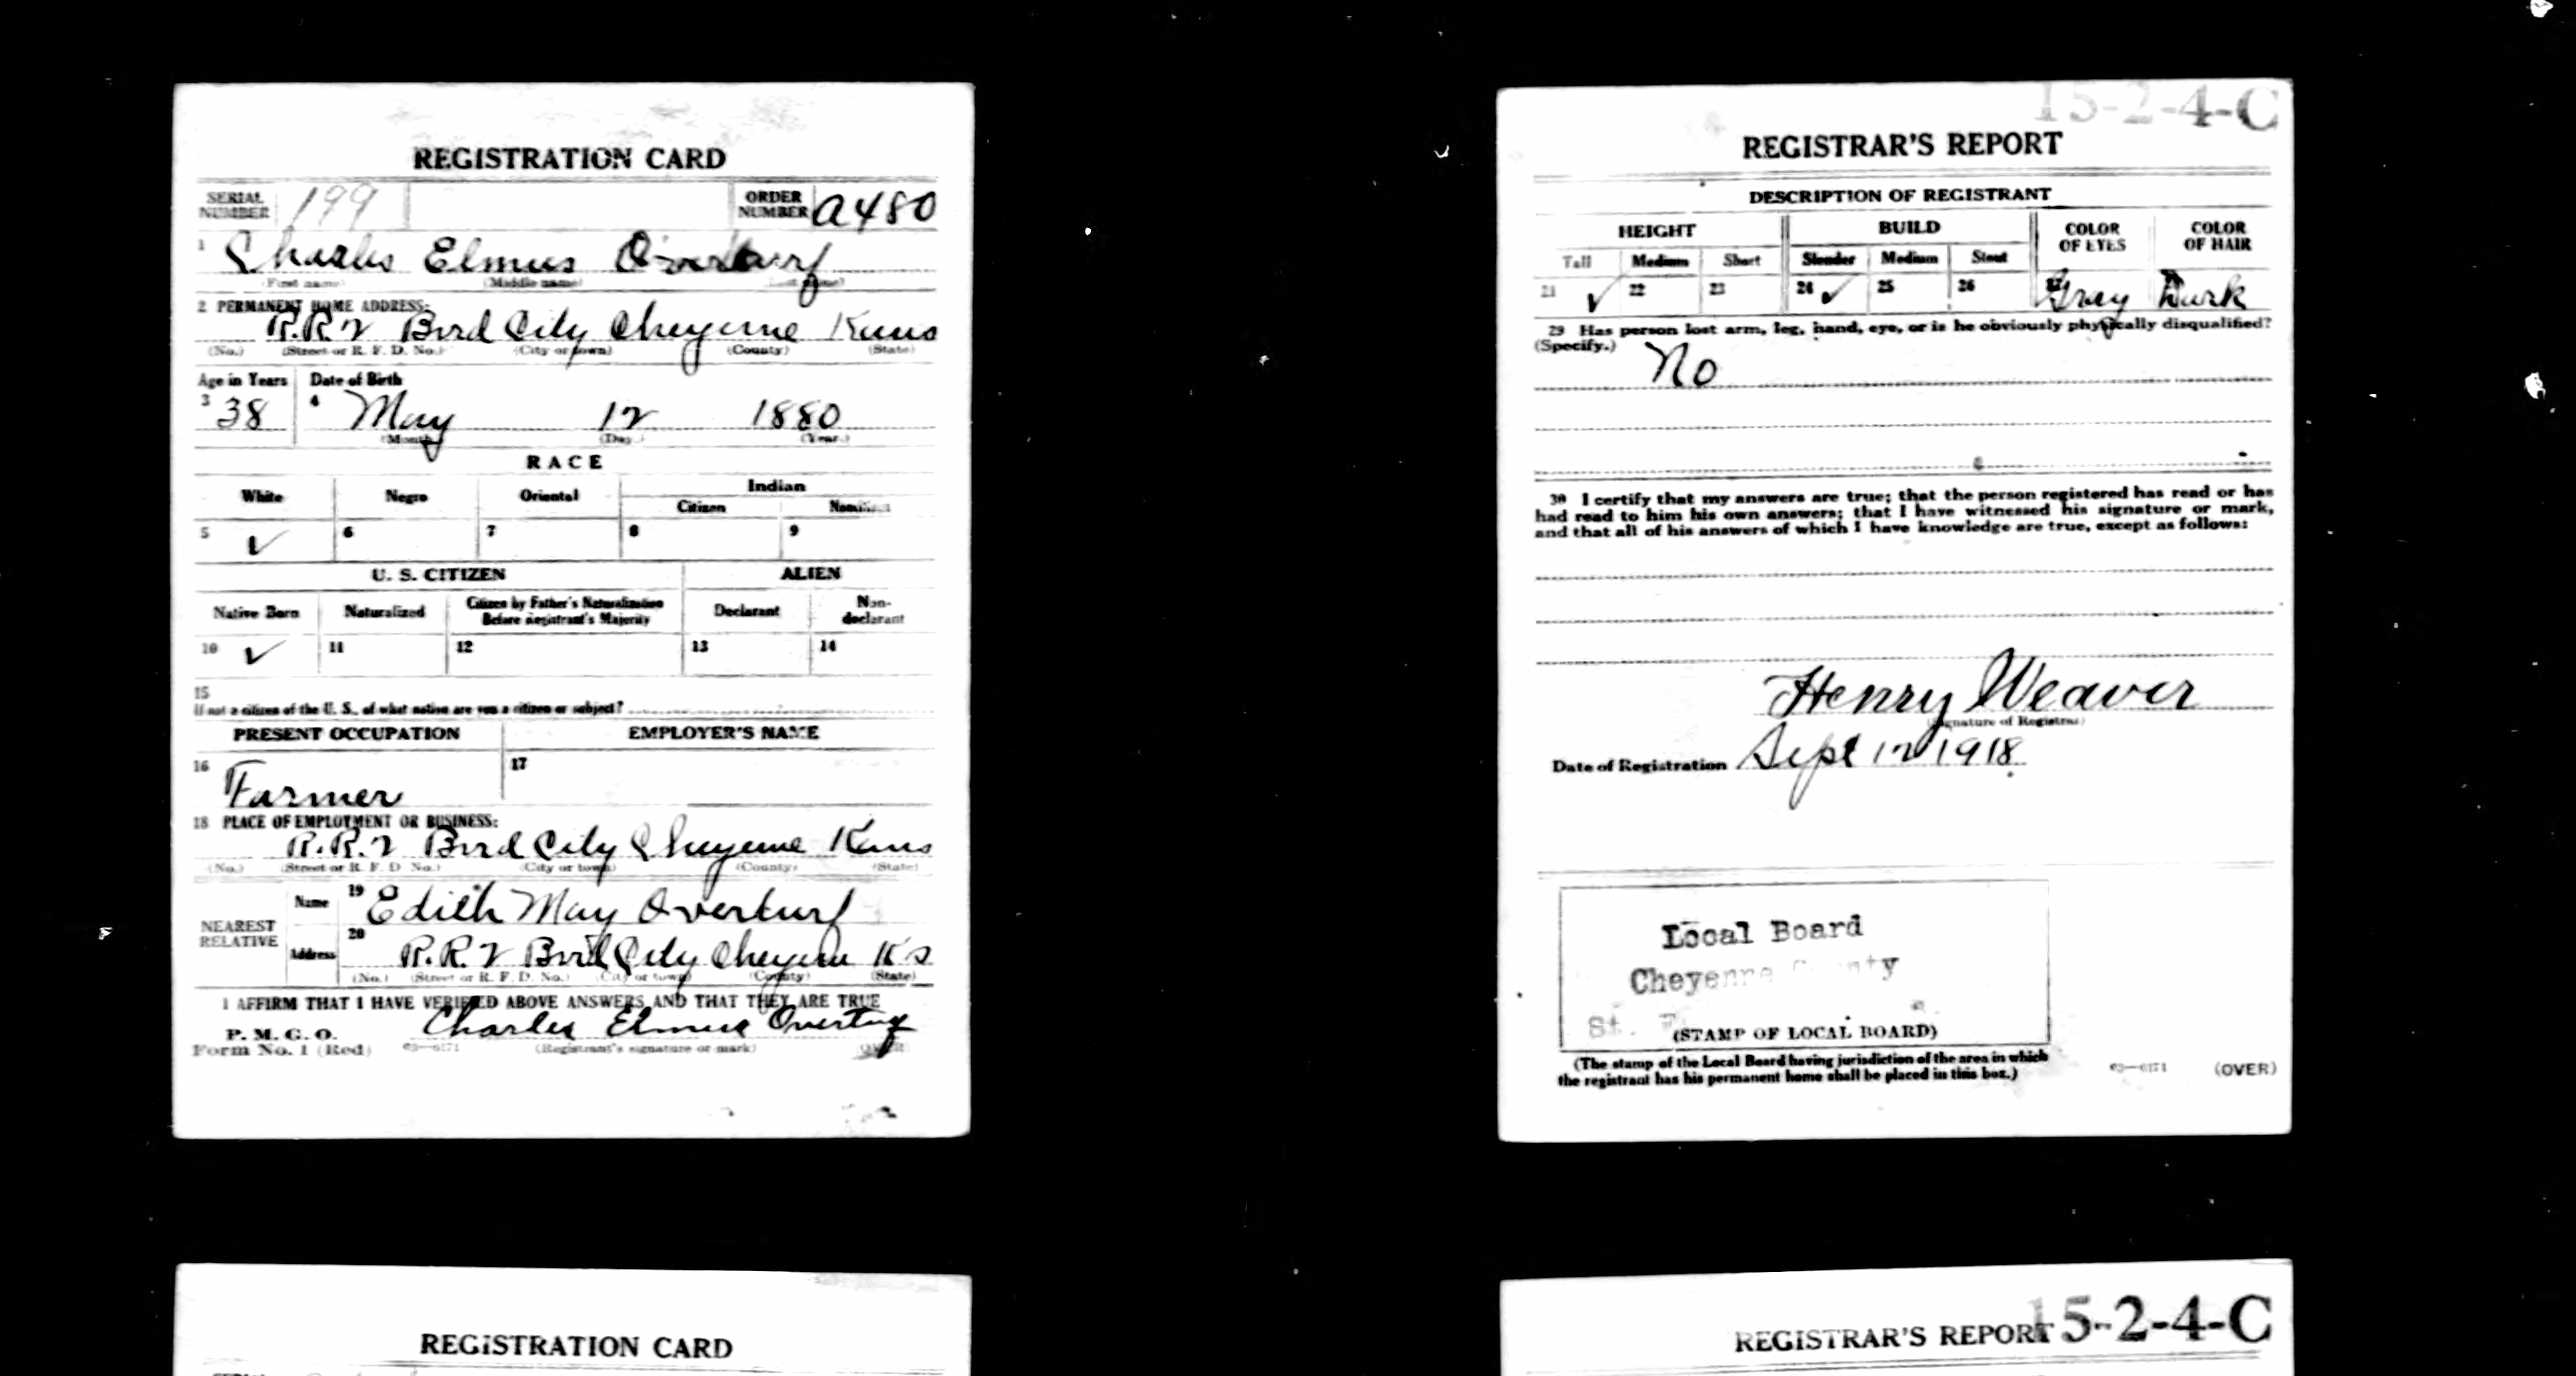 REGISTRATION CARD
SERIAL NUMBER 199 ORDER NUMBER A480
1 Charles Elmus Overturf
(First name) (Middle name) (Last name)
2 PERMANENT HOME ADDRESS:
R.R.2 Bird City Cheyenne Kans
(No.) (Street or R. F. D. No.) (City or town) (County) (State)
Age in Years Date of Birth
3 38 4 May 12 1880
(Month) (Day) (Year)
RACE
White Negro Oriental Indian
Citizen
5 ✓ 6 7 8 9
U. S. CITIZEN ALIEN
Native Born Naturalized Citizen by Father's Naturalization Before Registrant's Majority Declarant Non-declarant
10 ✓ 11 12 13 14
15
If not a citizen of the U. S., of what nation are you a citizen or subject?
PRESENT OCCUPATION EMPLOYER'S NAME
16 Farmer 17
18 PLACE OF EMPLOYMENT OR BUSINESS:
R.R.2 Bird City Cheyenne Kans
(No.) (Street or R. F. D. No.) (City or town) (County) (State)
NEAREST RELATIVE Name 19 Edith May Overturf
Address 20 R.R.2 Bird City Cheyenne Ks
(No.) (Street or R. F. D. No.) (City or town) (County) (State)
I AFFIRM THAT I HAVE VERIFIED ABOVE ANSWERS AND THAT THEY ARE TRUE
P. M. G. O.
Form No. 1 (Red) 03—6171 Charles Elmus Overturf
(Registrant's signature or mark) (OVER)
15-2-4-C
REGISTRAR'S REPORT
DESCRIPTION OF REGISTRANT
HEIGHT BUILD COLOR OF EYES COLOR OF HAIR
Tall Medium Short Slender Medium Stout
21 ✓ 22 23 24 ✓ 25 26 27 Gray Dark
29 Has person lost arm, leg, hand, eye, or is he obviously physically disqualified?
(Specify.) No
30 I certify that my answers are true; that the person registered has read or has
had read to him his own answers; that I have witnessed his signature or mark,
and that all of his answers of which I have knowledge are true, except as follows:
Henry Weaver
(Signature of Registrar)
Date of Registration Sept 12 1918
Local Board
Cheyenne County
St.
(STAMP OF LOCAL BOARD)
(The stamp of the Local Board having jurisdiction of the area in which
the registrant has his permanent home shall be placed in this box.)
03—6171 (OVER)
REGISTRATION CARD
15-2-4-C
REGISTRAR'S REPORT